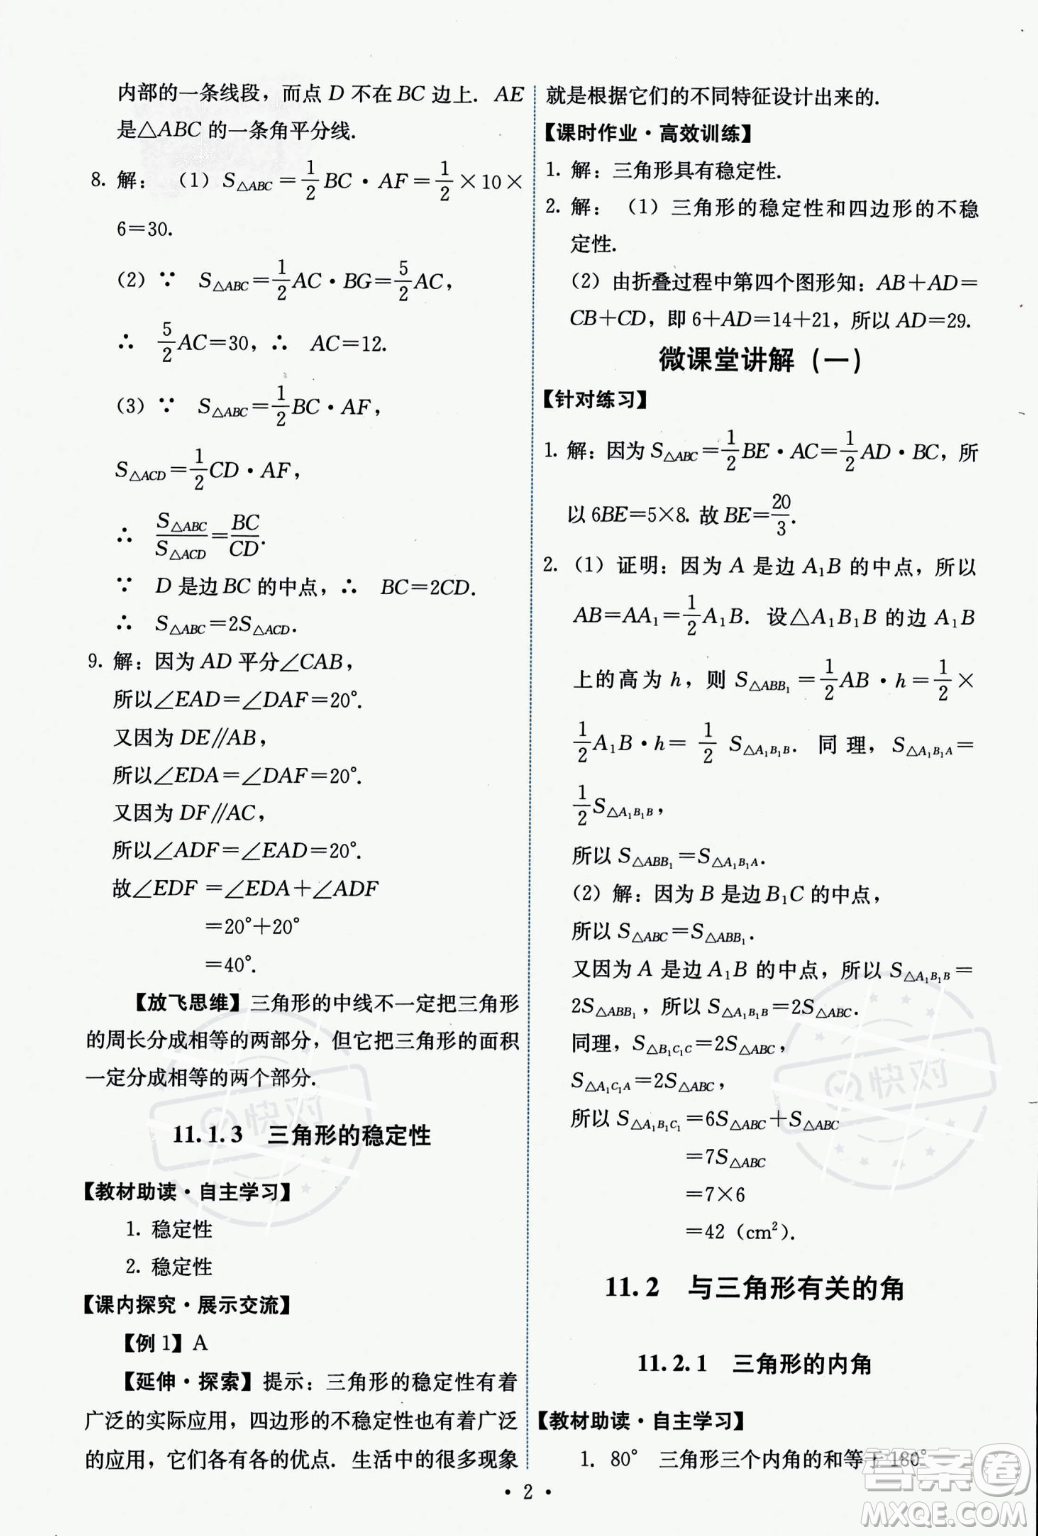 内部的一条线段，而点 D 不在 BC 边上．AE
是△ABC 的一条角平分线．
8. 解：（1）S△ABC＝1/2 BC・AF＝1/2×10×
6＝30.
（2）∵ S△ABC＝1/2 AC・BG＝5/2 AC，
∴ 5/2 AC＝30，∴ AC＝12.
（3）∵ S△ABC＝1/2 BC・AF，
S△ACD＝1/2 CD・AF，
∴ S△ABC/S△ACD＝BC/CD.
∵ D 是边 BC 的中点，∴ BC＝2CD.
∴ S△ABC＝2S△ACD.
9. 解：因为 AD 平分∠CAB，
所以∠EAD＝∠DAF＝20°.
又因为 DE∥AB，
所以∠EDA＝∠DAF＝20°.
又因为 DF∥AC，
所以∠ADF＝∠EAD＝20°.
故∠EDF＝∠EDA＋∠ADF
＝20°＋20°
＝40°.
【放飞思维】三角形的中线不一定把三角形
的周长分成相等的两部分，但它把三角形的面积
一定分成相等的两个部分．
11.1.3 三角形的稳定性
【教材助读・自主学习】
1. 稳定性
2. 稳定性
【课内探究・展示交流】
【例 1】A
【延伸・探索】提示：三角形的稳定性有着
广泛的实际应用，四边形的不稳定性也有着广泛
的应用，它们各有各的优点．生活中的很多现象
就是根据它们的不同特征设计出来的．
【课时作业・高效训练】
1. 解：三角形具有稳定性．
2. 解：（1）三角形的稳定性和四边形的不稳
定性．
（2）由折叠过程中第四个图形知：AB＋AD＝
CB＋CD，即 6＋AD＝14＋21，所以 AD＝29.
微课堂讲解（一）
【针对练习】
1. 解：因为 S△ABC＝1/2 BE・AC＝1/2 AD・BC，所
以 6BE＝5×8. 故 BE＝20/3.
2.（1）证明：因为 A 是边 A₁B 的中点，所以
AB＝AA₁＝1/2 A₁B．设△A₁B₁B 的边 A₁B
上的高为 h，则 S△ABB₁＝1/2 AB・h＝1/2×
1/2 A₁B・h＝1/2 S△A₁B₁B．同理，S△A₁B₁A＝
1/2 S△A₁B₁B，
所以 S△ABB₁＝S△A₁B₁A.
（2）解：因为 B 是边 B₁C 的中点，
所以 S△ABC＝S△ABB₁.
又因为 A 是边 A₁B 的中点，所以 S△A₁B₁B＝
2S△ABB₁，所以 S△A₁B₁B＝2S△ABC.
同理，S△B₁C₁C＝2S△ABC，
S△A₁C₁A＝2S△ABC，
所以 S△A₁B₁C₁＝6S△ABC＋S△ABC
＝7S△ABC
＝7×6
＝42（cm²）.
11.2 与三角形有关的角
11.2.1 三角形的内角
【教材助读・自主学习】
1. 80° 三角形三个内角的和等于 180°
・2・
快对
快对
答案圈
MXQE.COM